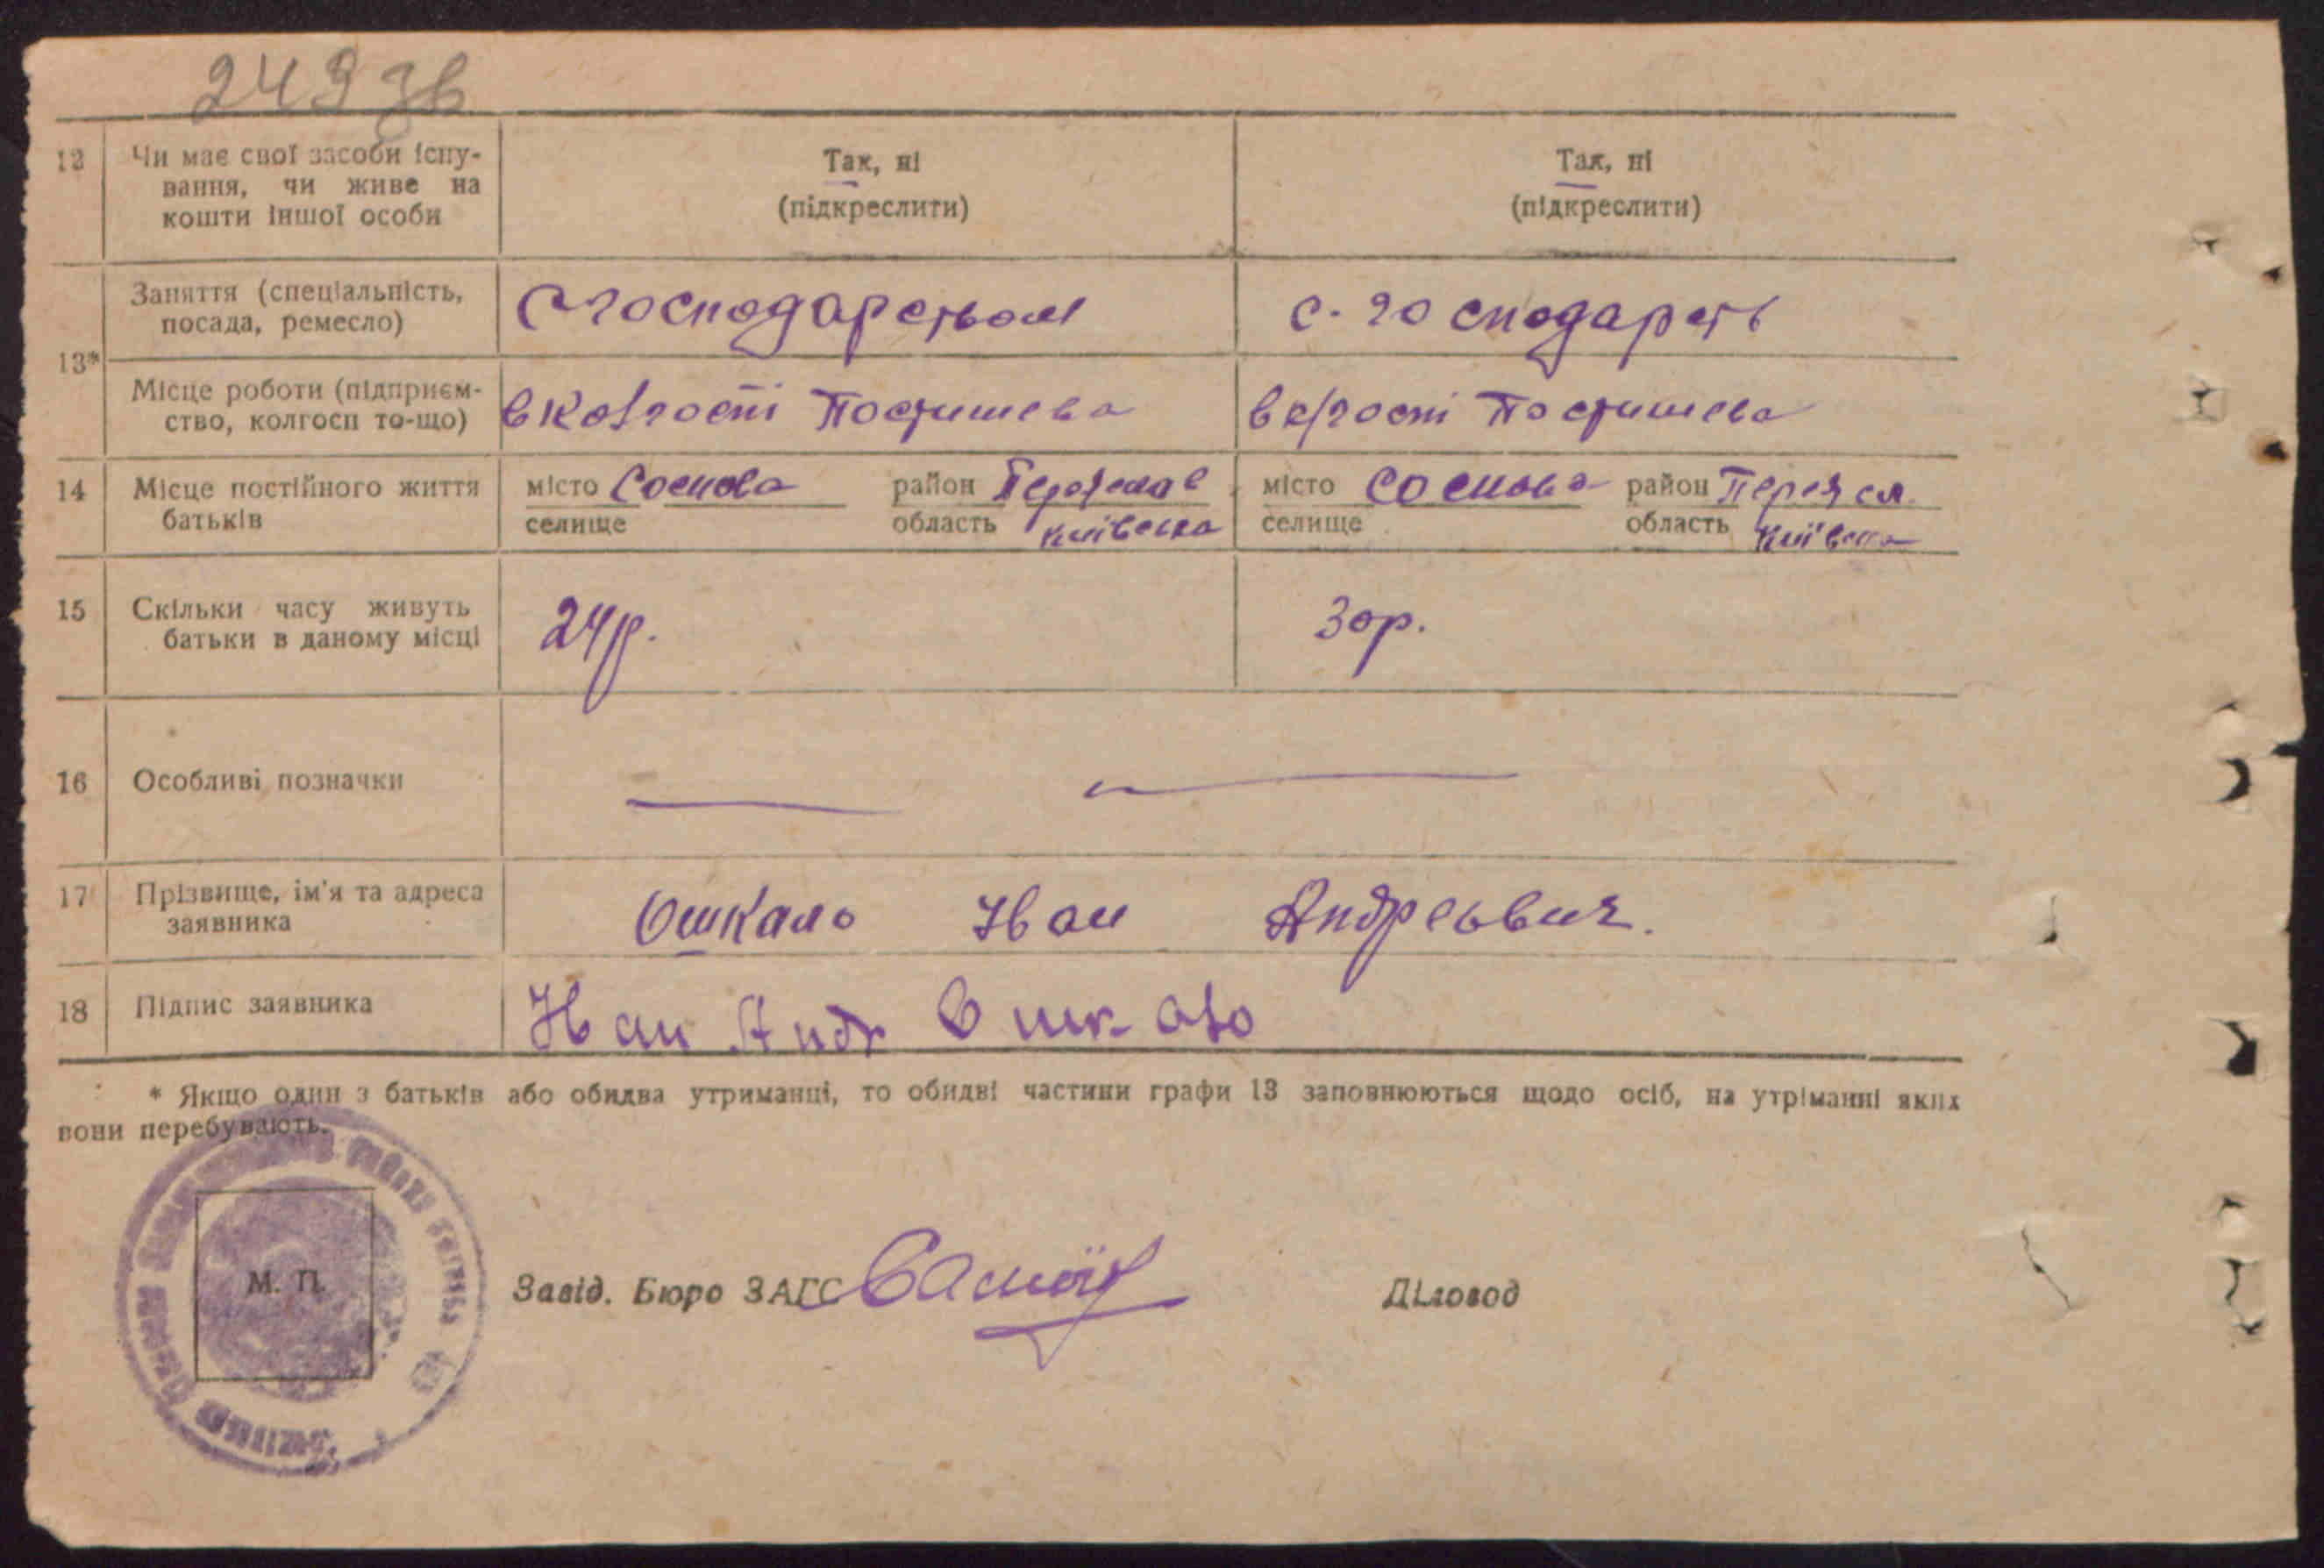 249 зв
12 Чи має свої засоби існу- Так, ні Так, ні
вання, чи живе на (підкреслити) (підкреслити)
кошти іншої особи
Заняття (спеціальність, с господарством с. господарств
посада, ремесло)
13*
Місце роботи (підприєм- в колгоспі Постишева в к/госпі Постишева
ство, колгосп то-що)
14 Місце постійного життя місто Соснова район Переяслав місто Соснова район Переясл.
батьків селище область київська селище область київська
15 Скільки часу живуть 24 р. 30 р.
батьки в даному місці
16 Особливі позначки
17 Прізвище, ім'я та адреса Ошкало Іван Андреєвич.
заявника
18 Підпис заявника Иван Андр Ошкало
* Якщо один з батьків або обидва утриманці, то обидві частини графи 13 заповнюються щодо осіб, на утріманні яких
вони перебувають.
М. П.
Завід. Бюро ЗАГС Діловод